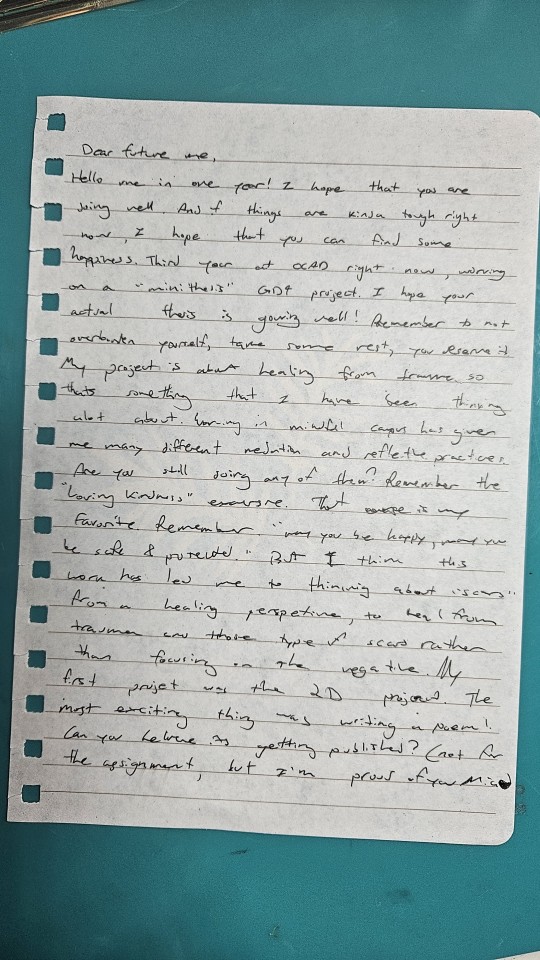 Dear future me,
Hello me in one year! I hope that you are
doing well. And if things are kinda tough right
now, I hope that you can find some
happiness. Third year at OCAD right now, working
on a "mini thesis" GD4 project. I hope your
actual thesis is going well! Remember to not
overburden yourself, take some rest, you deserve it
My project is about healing from trauma so
thats something that I have been thinking
alot about. in mindful campus has given
me many different meditation and reflective practices.
Are you still doing any of them? Remember the
"Loving kindness" That is my
favorite. Remember "may you be happy, may you
be safe & protected." But I think this
work has led me to thinking about "scars"
from a healing perspective, to heal from
trauma and those type of scars rather
than focusing on the negative. My
first project was the 2D project. The
most exciting thing was writing a poem!
Can you believe its getting published? (not for
the assignment, but I'm proud of you